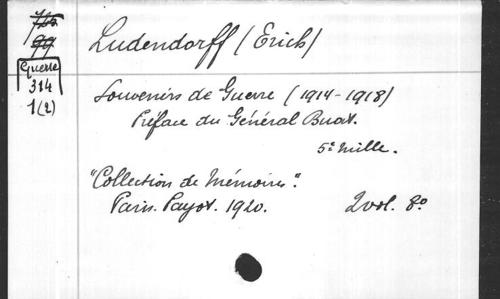 Ludendorff (Erich)
Guerre
314
1(2)
Souvenirs de Guerre (1914-1918)
Préface du Général Buat.
5e mille.
"Collection de Mémoires".
Paris. Payot. 1920. 2 vol. 8o